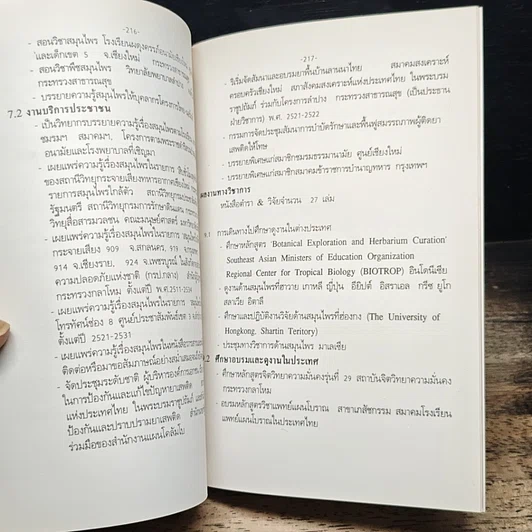 -216-
- สอนวิชาสมุนไพร โรงเรียนผดุงครรภ์อนามัย
และเด็กเขต 5 จ.เชียงใหม่ กระทรวงสาธารณสุข
- สอนวิชาพืชสมุนไพร วิทยาลัยพยาบาลลำปาง
กระทรวงสาธารณสุข
- บรรยายความรู้สมุนไพรให้บุคลากรโครงการ
7.2 งานบริการประชาชน
- เป็นวิทยากรบรรยายความรู้เรื่องสมุนไพร
ชมรมฯ สมาคมฯ, โครงการตามพระราชดำริ
อนามัยและโรงพยาบาลที่เชิญมา
- เผยแพร่ความรู้เรื่องสมุนไพรในรายการ
ของสถานีวิทยุกระจายเสียงทหารอากาศเชียงใหม่
รายการสมุนไพรใกล้ตัว สถานีวิทยุ
รัฐมนตรี สถานีวิทยุกรมการรักษาดินแดน
วิทยุสื่อสารมวลชน คณะมนุษย์ศาสตร์
- เผยแพร่ความรู้เรื่องสมุนไพรในรายการ
กระจายเสียง 909 จ.สกลนคร, 919
914 จ.เชียงราย, 924 จ.เพชรบูรณ์
ความปลอดภัยแห่งชาติ (กรป.กลาง)
กระทรวงกลาโหม ตั้งแต่ปี พ.ศ.2511-2534
- เผยแพร่ความรู้เรื่องสมุนไพรในรายการ
โทรทัศน์ช่อง 8 ศูนย์ประชาสัมพันธ์เขต 3
ตั้งแต่ปี 2521-2531
- เผยแพร่ความรู้เรื่องสมุนไพรในหนังสือวารสาร
ติดต่อหรือมาขอสัมภาษณ์อย่างสม่ำเสมอ
- จัดประชุมระดับชาติ ผู้บริหารองค์การ
ในการป้องกันและแก้ไขปัญหายาเสพติด
แห่งประเทศไทย ในพระบรมราชูปถัมภ์
ป้องกันและปราบปรามยาเสพติด
ร่วมมือของสำนักงานแผนโคลัมโบ
-217-
- ริเริ่มจัดสัมนาและอบรมยาพื้นบ้านลานนาไทย สมาคมสงเคราะห์
ครอบครัวเชียงใหม่ สภาสังคมสงเคราะห์แห่งประเทศไทย ในพระบรม
ราชูปถัมภ์ ร่วมกับโครงการลำปาง กระทรวงสาธารณสุข (เป็นประธาน
ฝ่ายวิชาการ) พ.ศ. 2521-2522
- กรรมการจัดประชุมสัมนาการบำบัดรักษาและฟื้นฟูสมรรถภาพผู้ติดยา
เสพติดให้โทษ
- บรรยายพิเศษแก่สมาชิกชมรมธรรมานามัย ศูนย์เชียงใหม่
- บรรยายพิเศษแก่สมาชิกสมาคมข้าราชการบำนาญทหาร กรุงเทพฯ
ผลงานทางวิชาการ
หนังสือตำรา & วิจัยจำนวน 27 เล่ม
.1 การเดินทางไปศึกษาดูงานในต่างประเทศ
- ศึกษาหลักสูตร 'Botanical Exploration and Herbarium Curation'
Southeast Asian Ministers of Education Organization
Regional Center for Tropical Biology (BIOTROP) อินโดนีเซีย
- ดูงานด้านสมุนไพรที่ฮาวาย เกาหลี ญี่ปุ่น อียิปต์ อิสราเอล กรีซ ยูโก
สลาเวีย อิตาลี
- ศึกษาและปฏิบัติงานวิจัยด้านสมุนไพรที่ฮ่องกง (The University of
Hongkong, Shartin Teritory)
- ประชุมทางวิชาการด้านสมุนไพร มาเลเซีย
.2 ศึกษาอบรมและดูงานในประเทศ
- ศึกษาหลักสูตรจิตวิทยาความมั่นคงรุ่นที่ 29 สถาบันจิตวิทยาความมั่นคง
กระทรวงกลาโหม
- อบรมหลักสูตรวิชาแพทย์แผนโบราณ สาขาเภสัชกรรม สมาคมโรงเรียน
แพทย์แผนโบราณในประเทศไทย